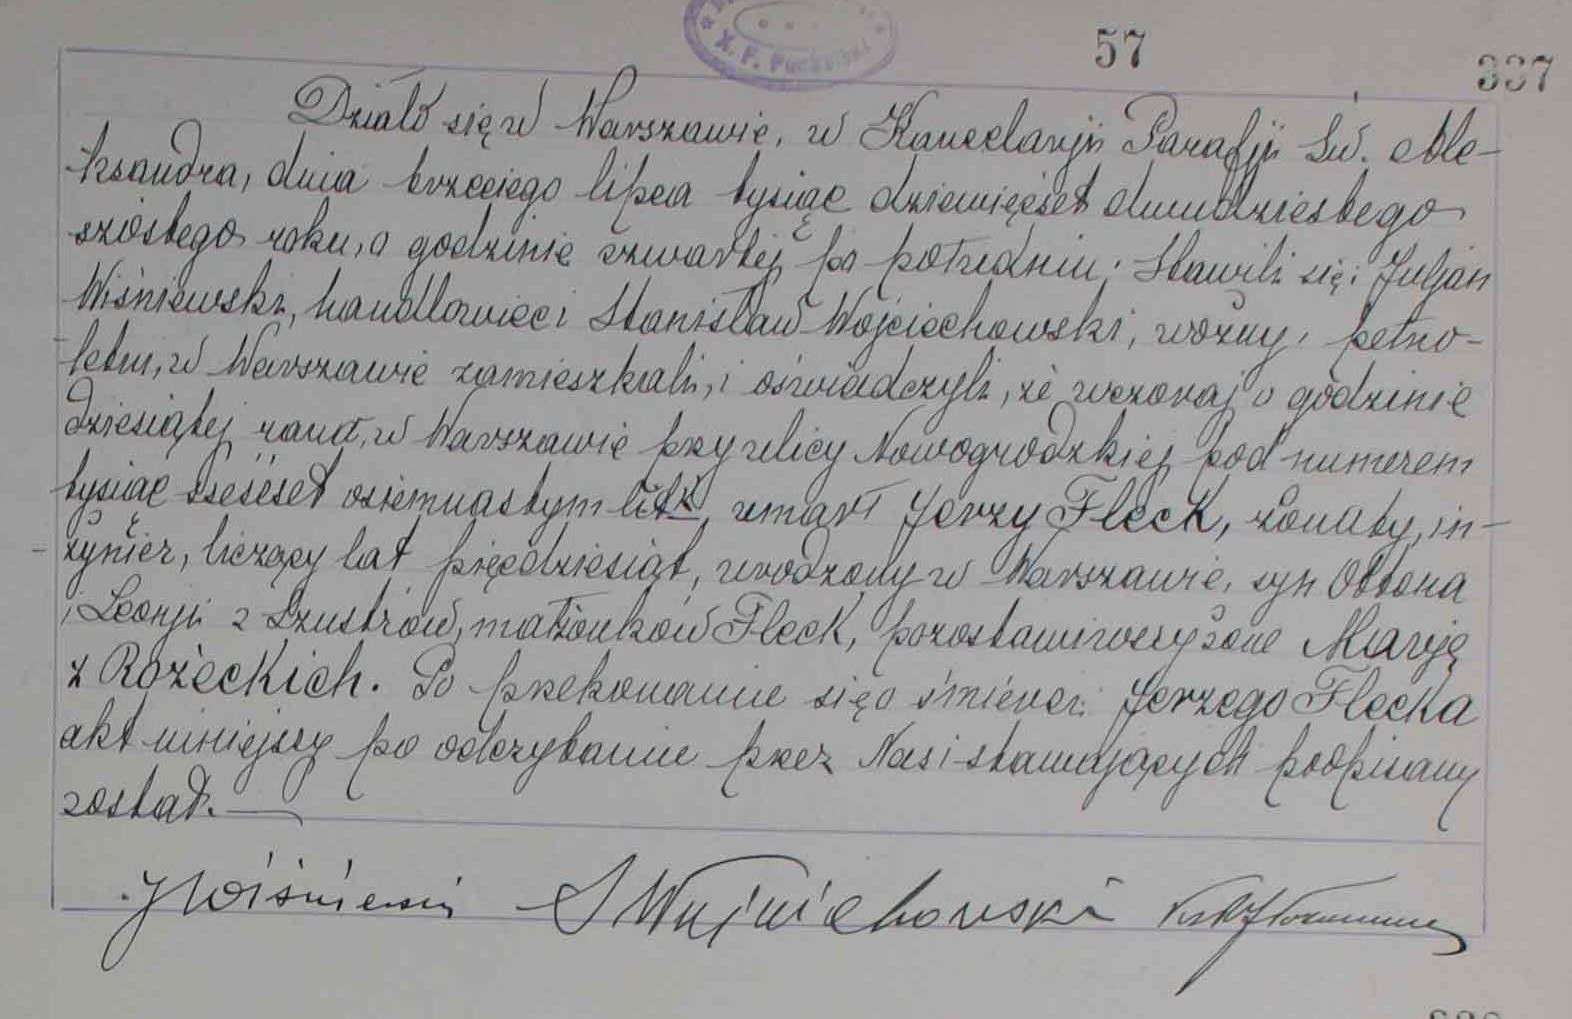 X. F.
57
337
Działo się w Warszawie, w Kancelaryji Parafji Św. Ale-
ksandra, dnia trzeciego lipca tysiąc dziewięćset dwudziestego
szóstego roku, o godzinie czwartej po południu. Stawili się: Juljan
Wiśniewski, handlowiec i Stanisław Wojciechowski, woźny, pełno-
letni, w Warszawie zamieszkali, i oświadczyli, że wczoraj o godzinie
dziesiątej rano, w Warszawie przy ulicy Nowogrodzkiej pod numerem
tysiąc sześćset osiemnastym lit K, zmarł Jerzy Fleck, żonaty, in-
żynier, liczący lat pięćdziesiąt, urodzony w Warszawie, syn Ottona
i Leonji z Szustrów, małżonków Fleck, pozostawiwszy żonę Marję
z Rożeckich. Po przekonaniu się o śmierci Jerzego Flecka
akt niniejszy po odczytaniu przez Nas i stawających podpisany
został.
J Wiśniewski S Wojciechowski